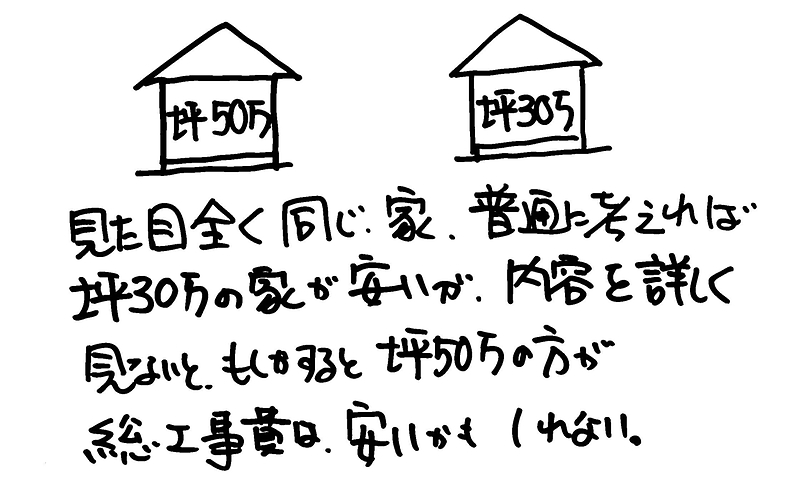 坪50万
坪30万
見た目全く同じ.家.普通に考えれば
坪30万の家が安いが.内容を詳しく
見ないと.もしかすると坪50万の方が
総工事費は.安いかもしれない。